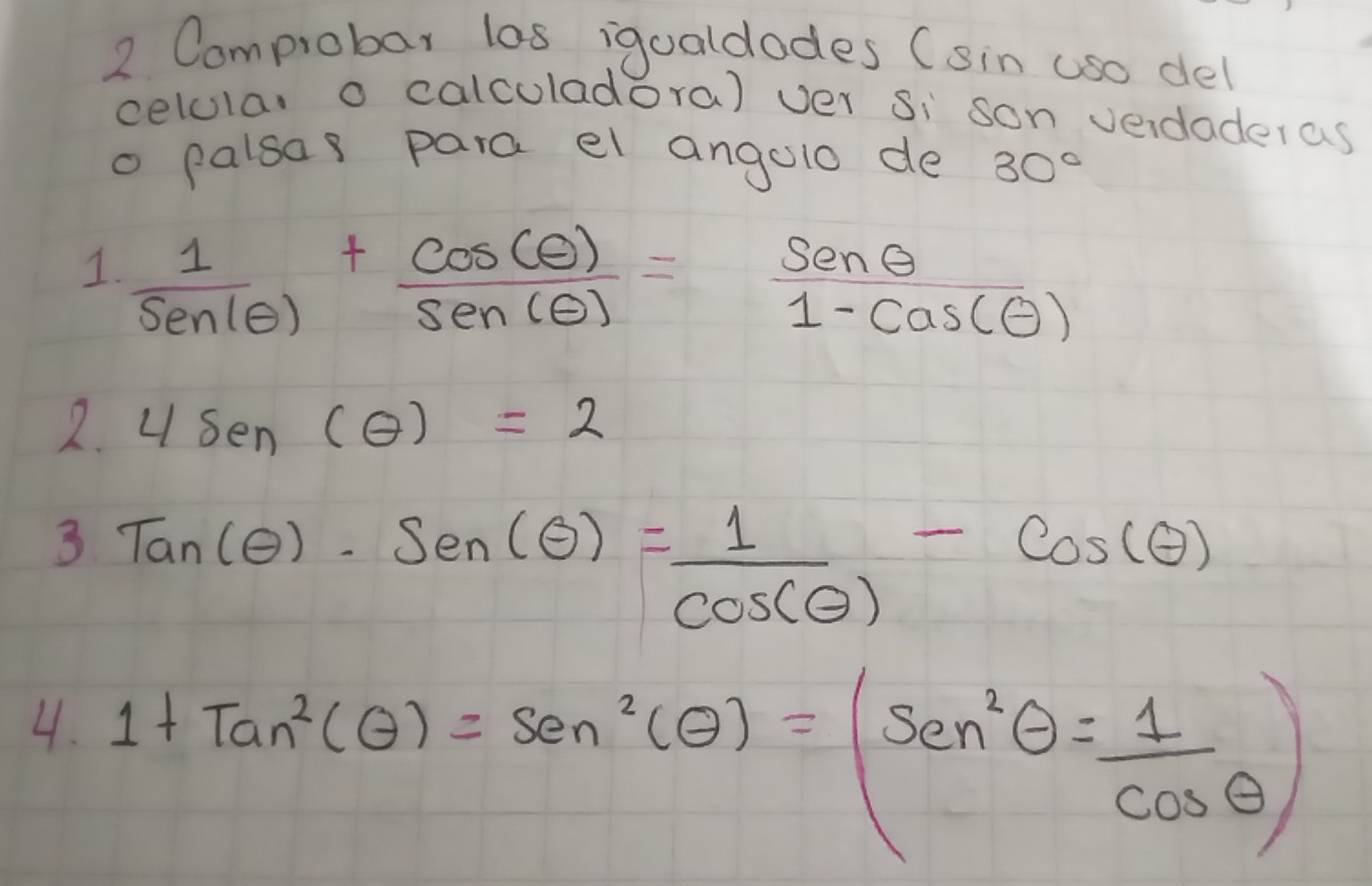 2. Comprobar las igualdades (sin uso del
celular o calculadora) ver si son verdaderas
o falsas para el angulo de 30°
1. 1/Sen(θ) + Cos(θ)/Sen(θ) = Sen θ/1 - Cas(θ)
2. 4 Sen (θ) = 2
3 Tan(θ) . Sen(θ) = 1/cos(θ) - Cos(θ)
4. 1 + Tan²(θ) = sen²(θ) = (Sen²θ = 1/cos θ)